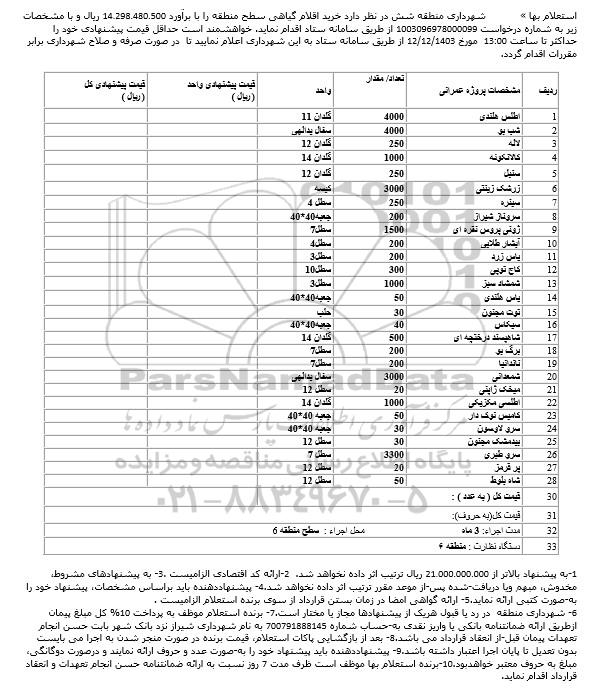 استعلام بها » شهرداری منطقه شش در نظر دارد خرید اقلام گیاهی سطح منطقه را با برآورد 14.298.480.500 ریال و با مشخصات
زیر به شماره درخواست 1003096978000099 از طریق سامانه ستاد اقدام نماید. خواهشمند است حداقل قیمت پیشنهادی خود را
حداکثر تا ساعت 13:00 مورخ 12/12/1403 از طریق سامانه ستاد به این شهرداری اعلام نمایید تا در صورت صرفه و صلاح شهرداری برابر
مقررات اقدام گردد.
ردیف مشخصات پروژه عمرانی تعداد/ مقدار واحد قیمت پیشنهادی واحد (ریال) قیمت پیشنهادی کل (ریال)
1 اطلس هلندی 4000 گلدان 11
2 شب بو 4000 سفال یدالهی
3 لاله 250 گلدان 12
4 کالانکوئه 1000 گلدان 14
5 سنبل 250 گلدان 12
6 زرشک زینتی 3000 کیسه
7 سینره 250 سطل 4
8 سروناز شیراز 200 جعبه40*40
9 ژونی پروس نقره ای 1500 سطل7
10 آبشار طلایی 200 سطل4
11 یاس زرد 200 سطل3
12 کاج توپی 300 سطل10
13 شمشاد سبز 1000 سطل3
14 یاس هلندی 50 جعبه40*40
15 توت مجنون 30 حلب
16 سیکاس 40 جعبه40*40
17 شاهپسند درختچه ای 500 گلدان 14
18 برگ بو 200 سطل7
19 ناندانیا 200 سطل7
20 شمعدانی 3000 سفال یدالهی
21 میخک ژاپنی 20 سطل 12
22 اطلسی مکزیکی 1000 گلدان 14
23 کامیس نوک دار 50 جعبه 40*40
24 سرو لاوسون 30 جعبه 40*40
25 بیدمشک مجنون 30 سطل 12
26 سرو طبری 3300 سطل 7
27 پر قرمز 20 سطل 12
28 شاه بلوط 50 سطل 12
30 قیمت کل ( به عدد ) :
31 قیمت کل(به حروف):
32 مدت اجراء: 3 ماه محل اجراء : سطح منطقه 6
33 دستگاه نظارت : منطقه ۶
ParsNamadData
پایگاه اطلاع رسانی مناقصه و مزایده
۰۲۱-۸۸۳۴۹۶۷۰-۵
1-به پیشنهاد بالاتر از 21.000.000.000 ریال ترتیب اثر داده نخواهد شد. 2-ارائه کد اقتصادی الزامیست .3- به پیشنهادهای مشروط،
مخدوش، مبهم ویا دریافت-شده پس-از موعد مقرر ترتیب اثر داده نخواهد شد.4- پیشنهاددهنده باید براساس مشخصات، پیشنهاد خود را
به-صورت کتبی ارائه نماید.5- ارائه گواهی امضا در زمان بستن قرارداد از سوی برنده استعلام الزامیست .
6- شهرداری منطقه در رد یا قبول هریک از پیشنهادها مجاز یا مختار است.7- برنده استعلام موظف به پرداخت 10% کل مبلغ پیمان
ازطریق ارائه ضمانتنامه بانکی یا واریز نقدی به-حساب شماره 700791888145 به نام شهرداری شیراز نزد بانک شهر بابت حسن انجام
تعهدات پیمان قبل-از انعقاد قرارداد می باشد.8- بعد از بازگشایی پاکات استعلام، قیمت برنده در صورت منجر شدن به اجرا می بایست
بدون تعدیل تا پایان اجرا اعتبار داشته باشد.9- پیشنهاددهنده باید پیشنهاد خود را به-صورت عدد و حروف ارائه نمایند و درصورت دوگانگی،
مبلغ به حروف معتبر خواهدبود.10-برنده استعلام بها موظف است ظرف مدت 7 روز نسبت به ارائه ضمانتنامه حسن انجام تعهدات و انعقاد
قرارداد اقدام نماید.